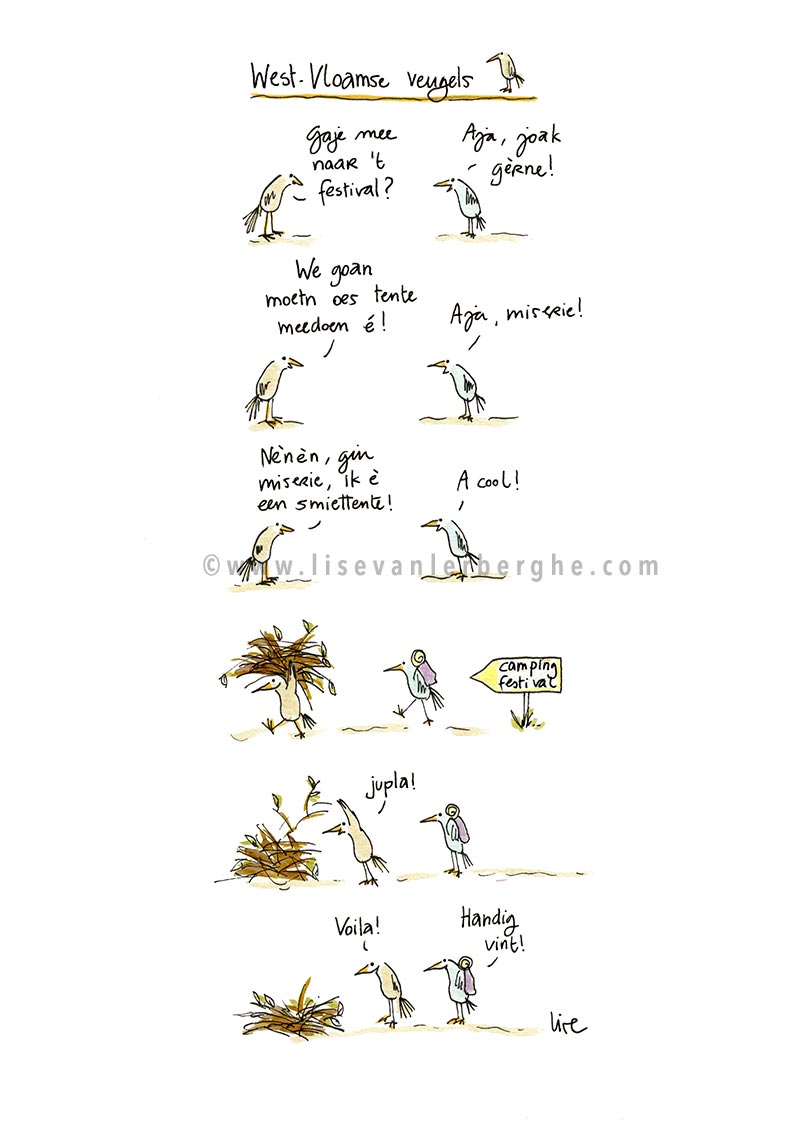 West-Vloamse veugels
Gaje mee
naar 't
festival?
Aja, joak
gèrne!
We goan
moetn oes tente
meedoen é!
Aja, miserie!
Nènèn, gin
miserie, ik è
een smiettente!
A cool!
©www.lisevanlerberghe.com
camping
festival
jupla!
Voila!
Handig
vint!
lise